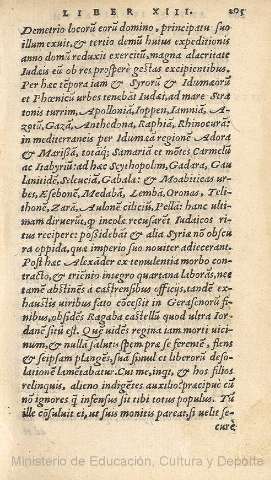 LIBER XIII. 205
Demetrio locorũ eorũ domino, principatu suo
illum exuit, & tertio demũ huius expeditionis
anno domũ reduxit exercitũ, magna alacritate
Iudæis eũ ob res prospere gestas excipientibus.
Per hæc tẽpora iam & Syrorũ & Idumæorũ
et Phœnicũ urbes tenebãt Iudæi, ad mare Stra
tonis turrim, Apolloniã, Ioppen, Iamniã, A-
zotũ, Gazã, Anthedona, Raphiã, Rhinocurã: in
mediterraneis per Idumæã regionẽ Adora
& Marissã, totãq; Samariã et mõtes Carmelũ
ac Itabyriũ: ad hæc Scythopolim, Gadara, Gau
laniti dẽ, Seleuciã, Gabala: & Moabiticas ur-
bes, Esebonẽ, Medabã, Lembã, Oronas, Teli-
thonẽ, Zarã, Aulonẽ ciliciũ, Pellã: hanc ult
imam diruerũt, qƺ incolæ recusarẽt Iudaicos ri-
tus recipere: possidebãt & alia Syriæ nõ obscu
ra oppida, quæ imperio suo nouiter adiecerant.
Post hæc Alexãder ex temulentia morbo con-
tracto, & triẽnio integro quartana laborãs, nec
tamẽ abstinẽs à castrensibus officijs, tandẽ ex-
haustis uiribus fato cõcessit in Gerasenorũ fi-
nibus, obsidẽs Ragaba castellũ quod ultra Ior-
danẽ situ est. Quẽ uidẽs regina iam morti uici-
num, & nullã salutis spem præ se ferentẽ, flens
& seipsam plangẽs, suã simul et liberorũ deso-
lationẽ lamẽtabatur. Cui me, inqt, & hos filios
relinquis, alieno indigẽtes auxilio: præcipue cũ
nõ ignores q̃ infensus sit tibi totus populus. Tũ
ille cõsuluit ei, ut suis monitis pareat, si uelit se-
curè
Ministerio de Educación, Cultura y Deporte